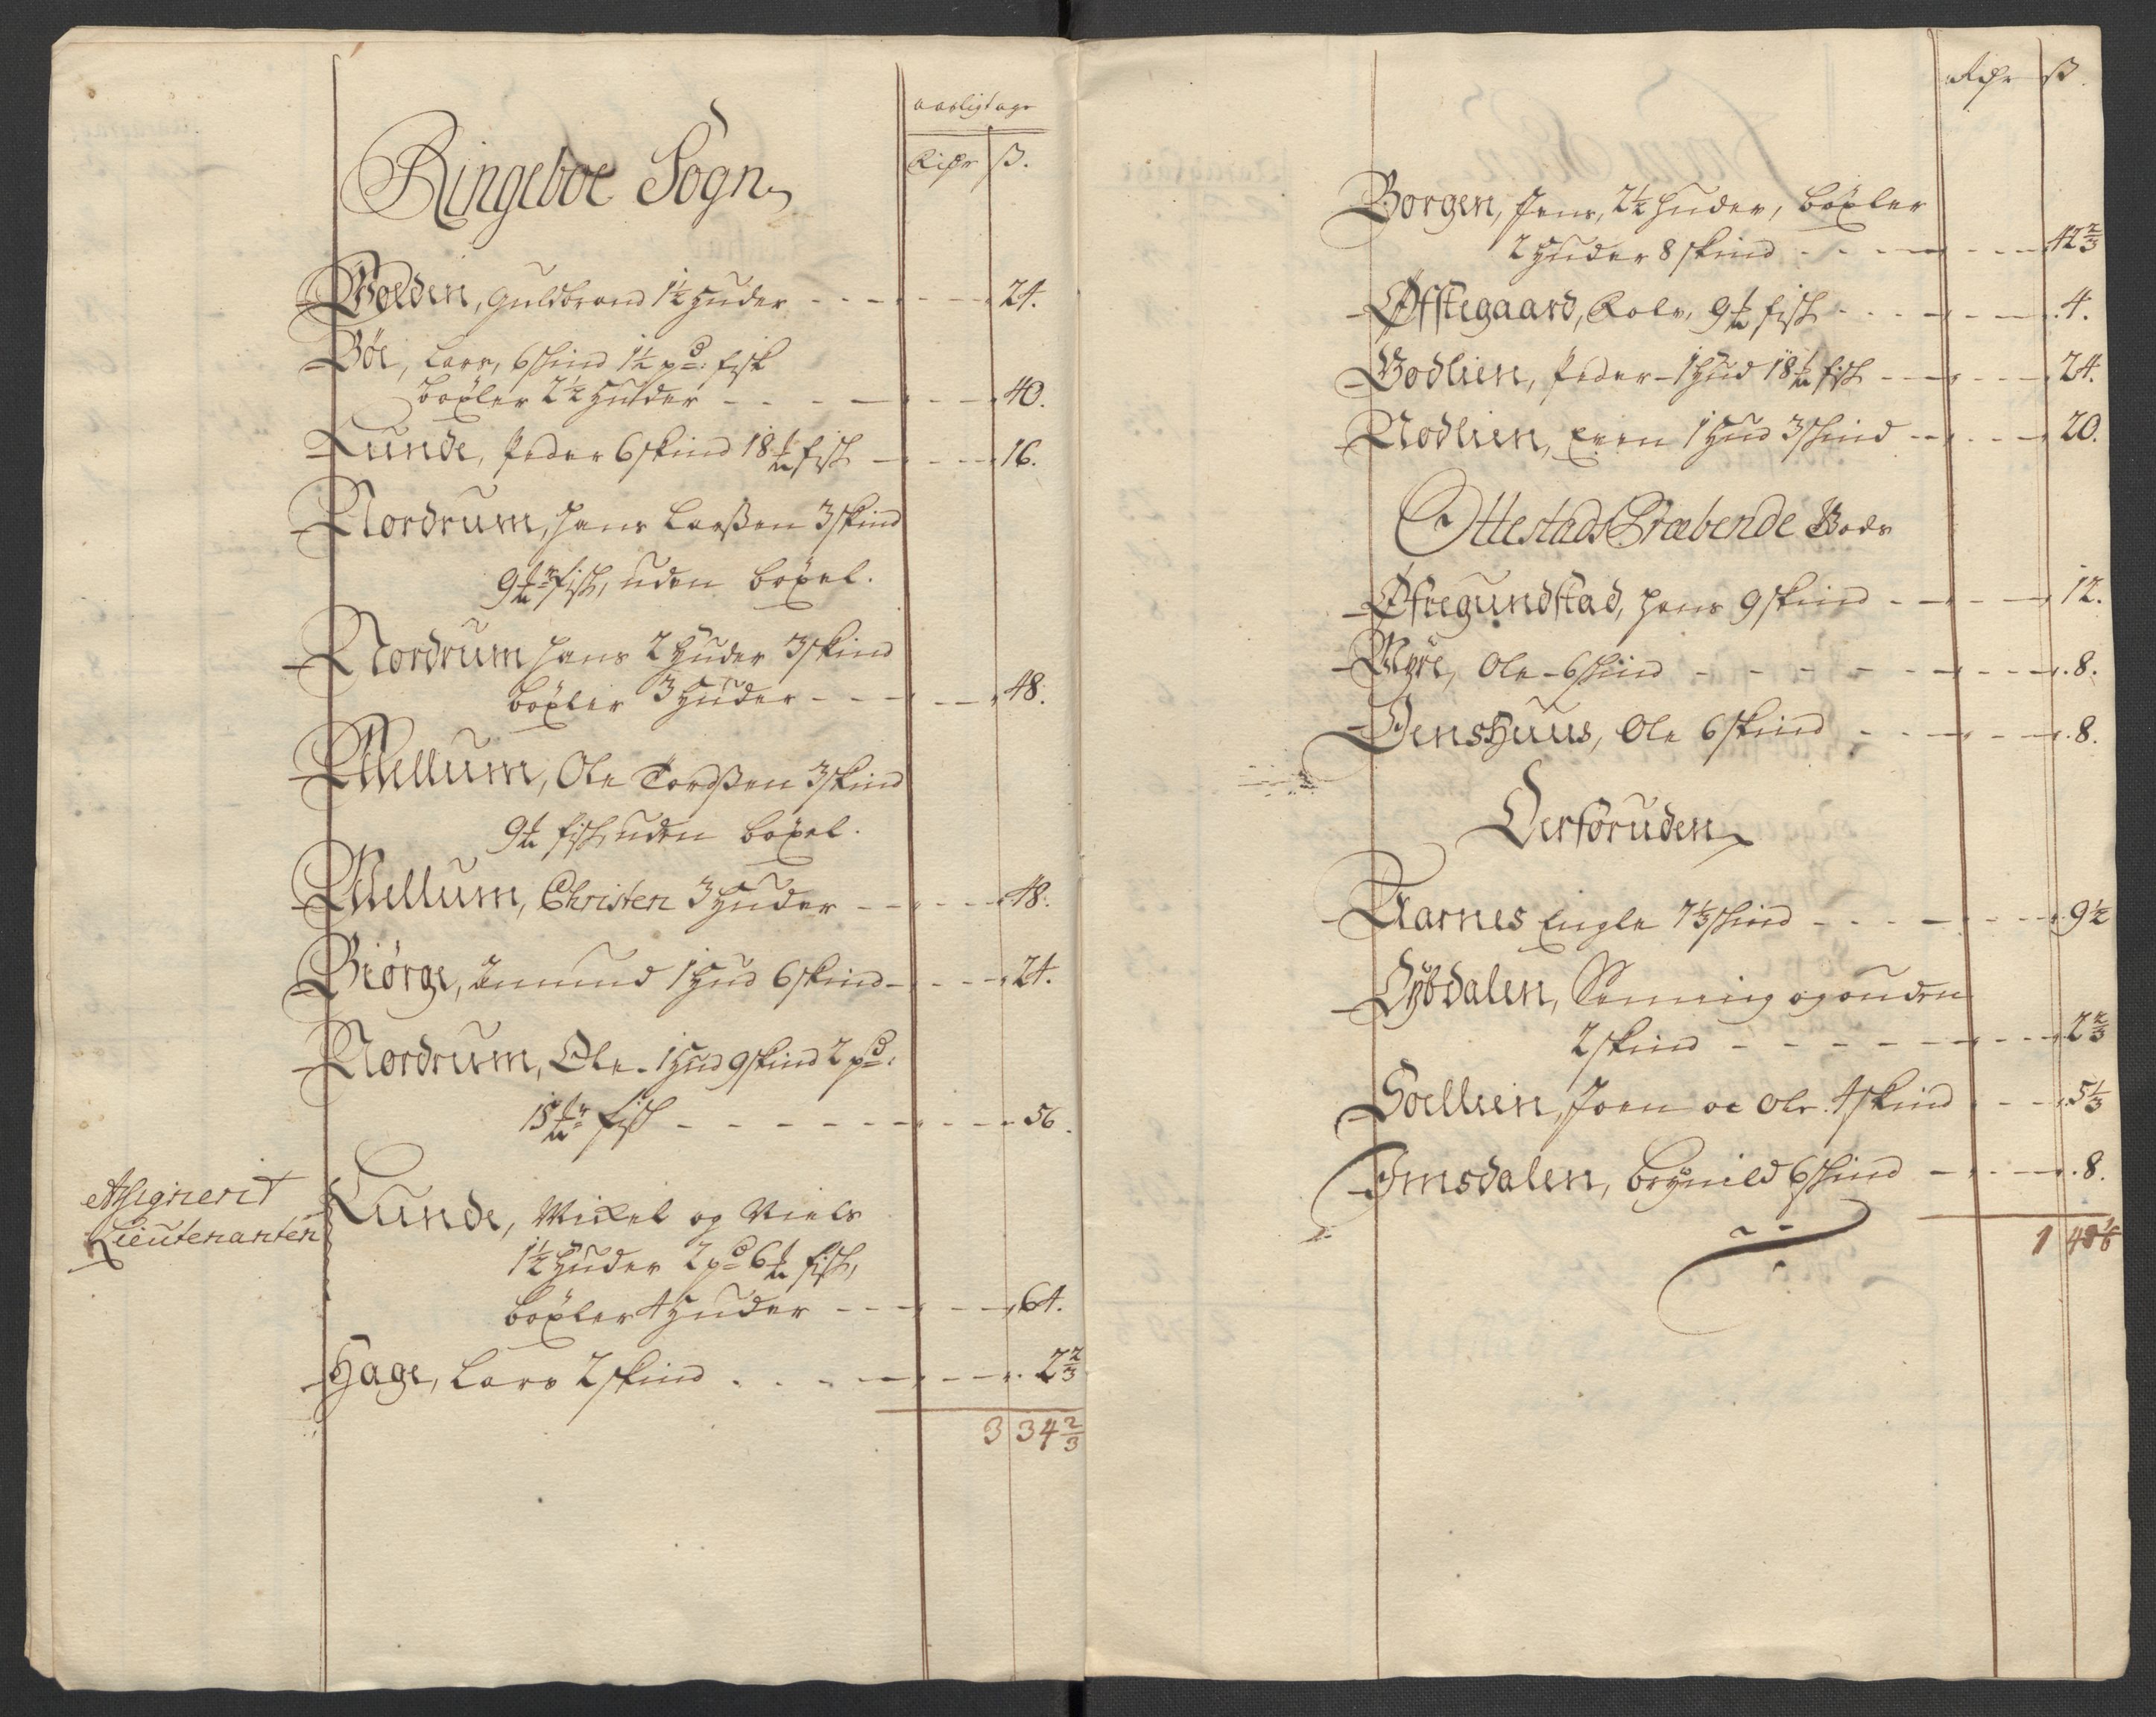 aarligtage
Rixdr ß.
Ringeboe Sogn
Volden, Guldbrand 1½ huder - - - 24.
Böe, Lars, 6 skind 1½ pd: fisk
böxler 2½ huder - - - 40.
Lunde, Peder 6 skind 18 ℔ fisk - - - 16.
Nordrum, Hans Larßen 3 skind
9 ℔r fisk, uden böxel.
Nordrum Hans 2 huder 3 skind
böxler 3 huder - - - 48.
Mellum, Ole Tordßen 3 skind
9 ℔ fisk, uden böxel.
Mellum, Christen 3 huder - - - 48.
Biörge, Amund 1 hud 6 skind - - - 24.
Nordrum, Ole - 1 hud 9 skind 2 pd:
15 ℔r fisk - - - 56.
Assignerit
Lieutenanten
Lunde, Mickel og Niels
1½ huder 2 pd 6 ℔ fisk,
böxler 4 huder - - - 64.
Hage, Lars 2 skind - - - 2⅔
3 34⅔
Rdr ß.
Borgen, Jens, 2½ huder, böxler
2 huder 8 skind - - - 42⅔
Øfstegaard, Rolv, 9 ℔ fisk - - - 4.
Bodlien, Peder - 1 hud 18 ℔ fisk - - - 24.
Nodlien, Even 1 hud 3 skind - - - 20.
Ottestads Præbende Bods
Øfregundstad, Hans 9 skind - - - 12.
Myre, Ole - 6 skind - - - 8.
Jenshuus, Ole 6 skind - - - 8.
Österuden
Aarnes Engle 7⅓ skind - - - 9½
Dybdalen, Henning og anden
2 skind - - - 2⅔
Soellien, Joen oc Ole 4 skind - - - 5⅓
Imsdalen, Brynild 6 skind - - - 8.
1